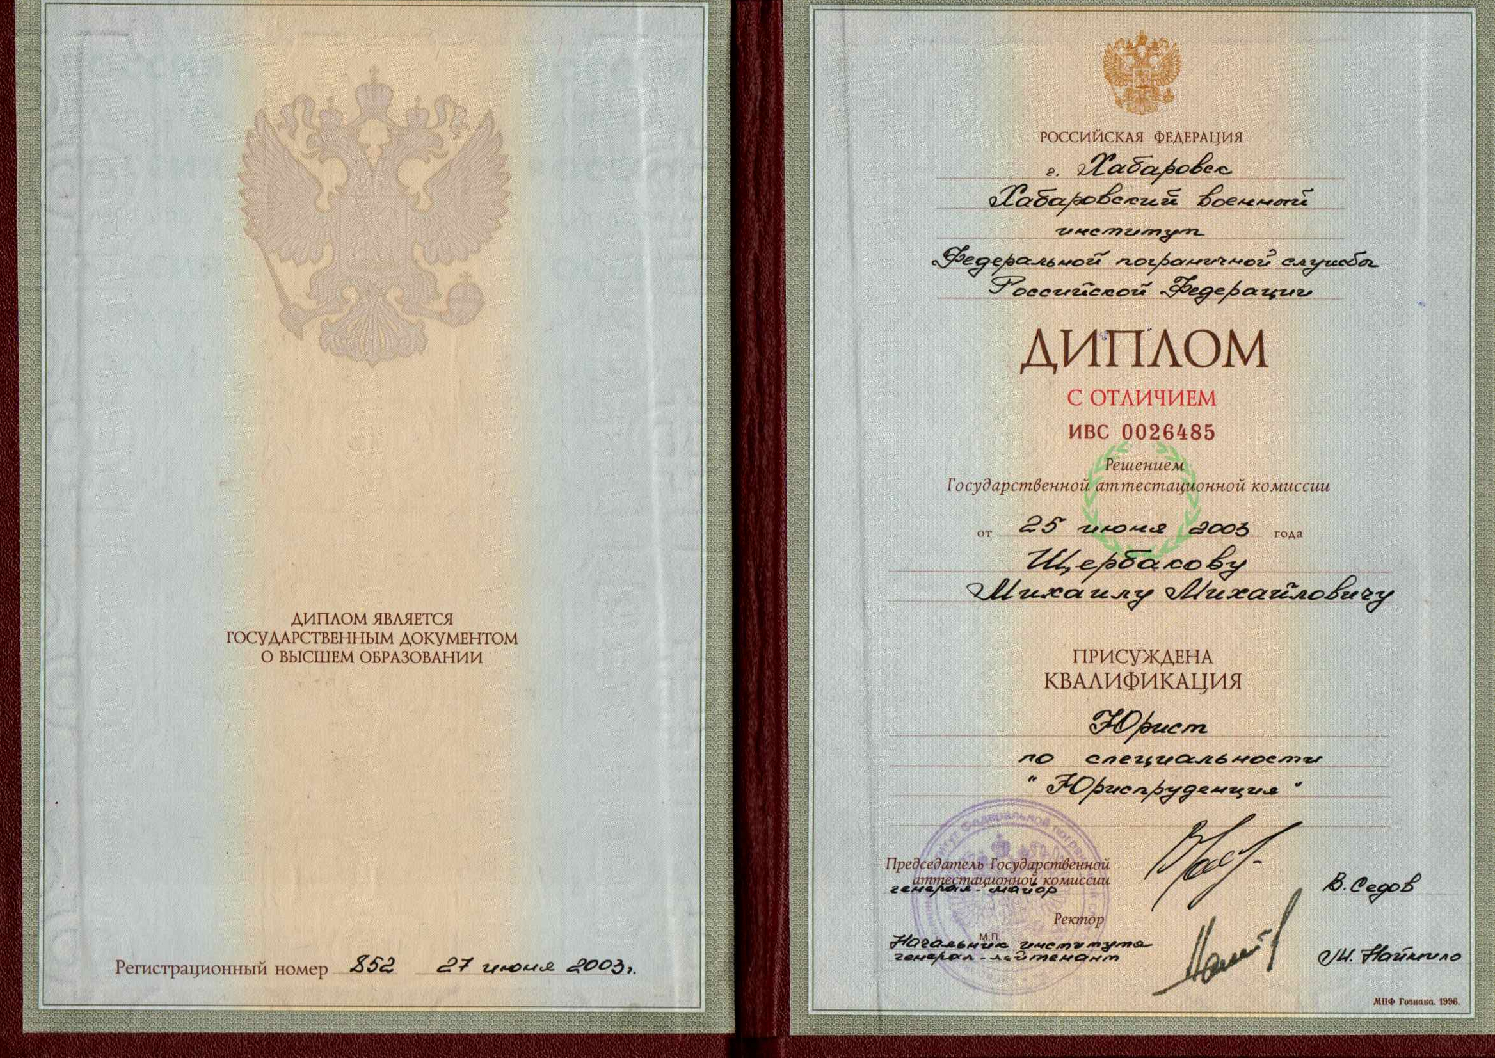 ДИПЛОМ ЯВЛЯЕТСЯ
ГОСУДАРСТВЕННЫМ ДОКУМЕНТОМ
О ВЫСШЕМ ОБРАЗОВАНИИ
Регистрационный номер 852 27 июня 2003г.
РОССИЙСКАЯ ФЕДЕРАЦИЯ
г. Хабаровск
Хабаровский военный
институт
Федеральной пограничной службы
Российской Федерации
ДИПЛОМ
С ОТЛИЧИЕМ
ИВС 0026485
Решением
Государственной аттестационной комиссии
от 25 июня 2003 года
Щербакову
Михаилу Михайловичу
ПРИСУЖДЕНА
КВАЛИФИКАЦИЯ
Юрист
по специальности
"Юриспруденция"
Председатель Государственной
аттестационной комиссии
генерал-майор
В. Седов
Ректор
М.П.
Начальник института
генерал-лейтенант
МПФ Гознака. 1996.